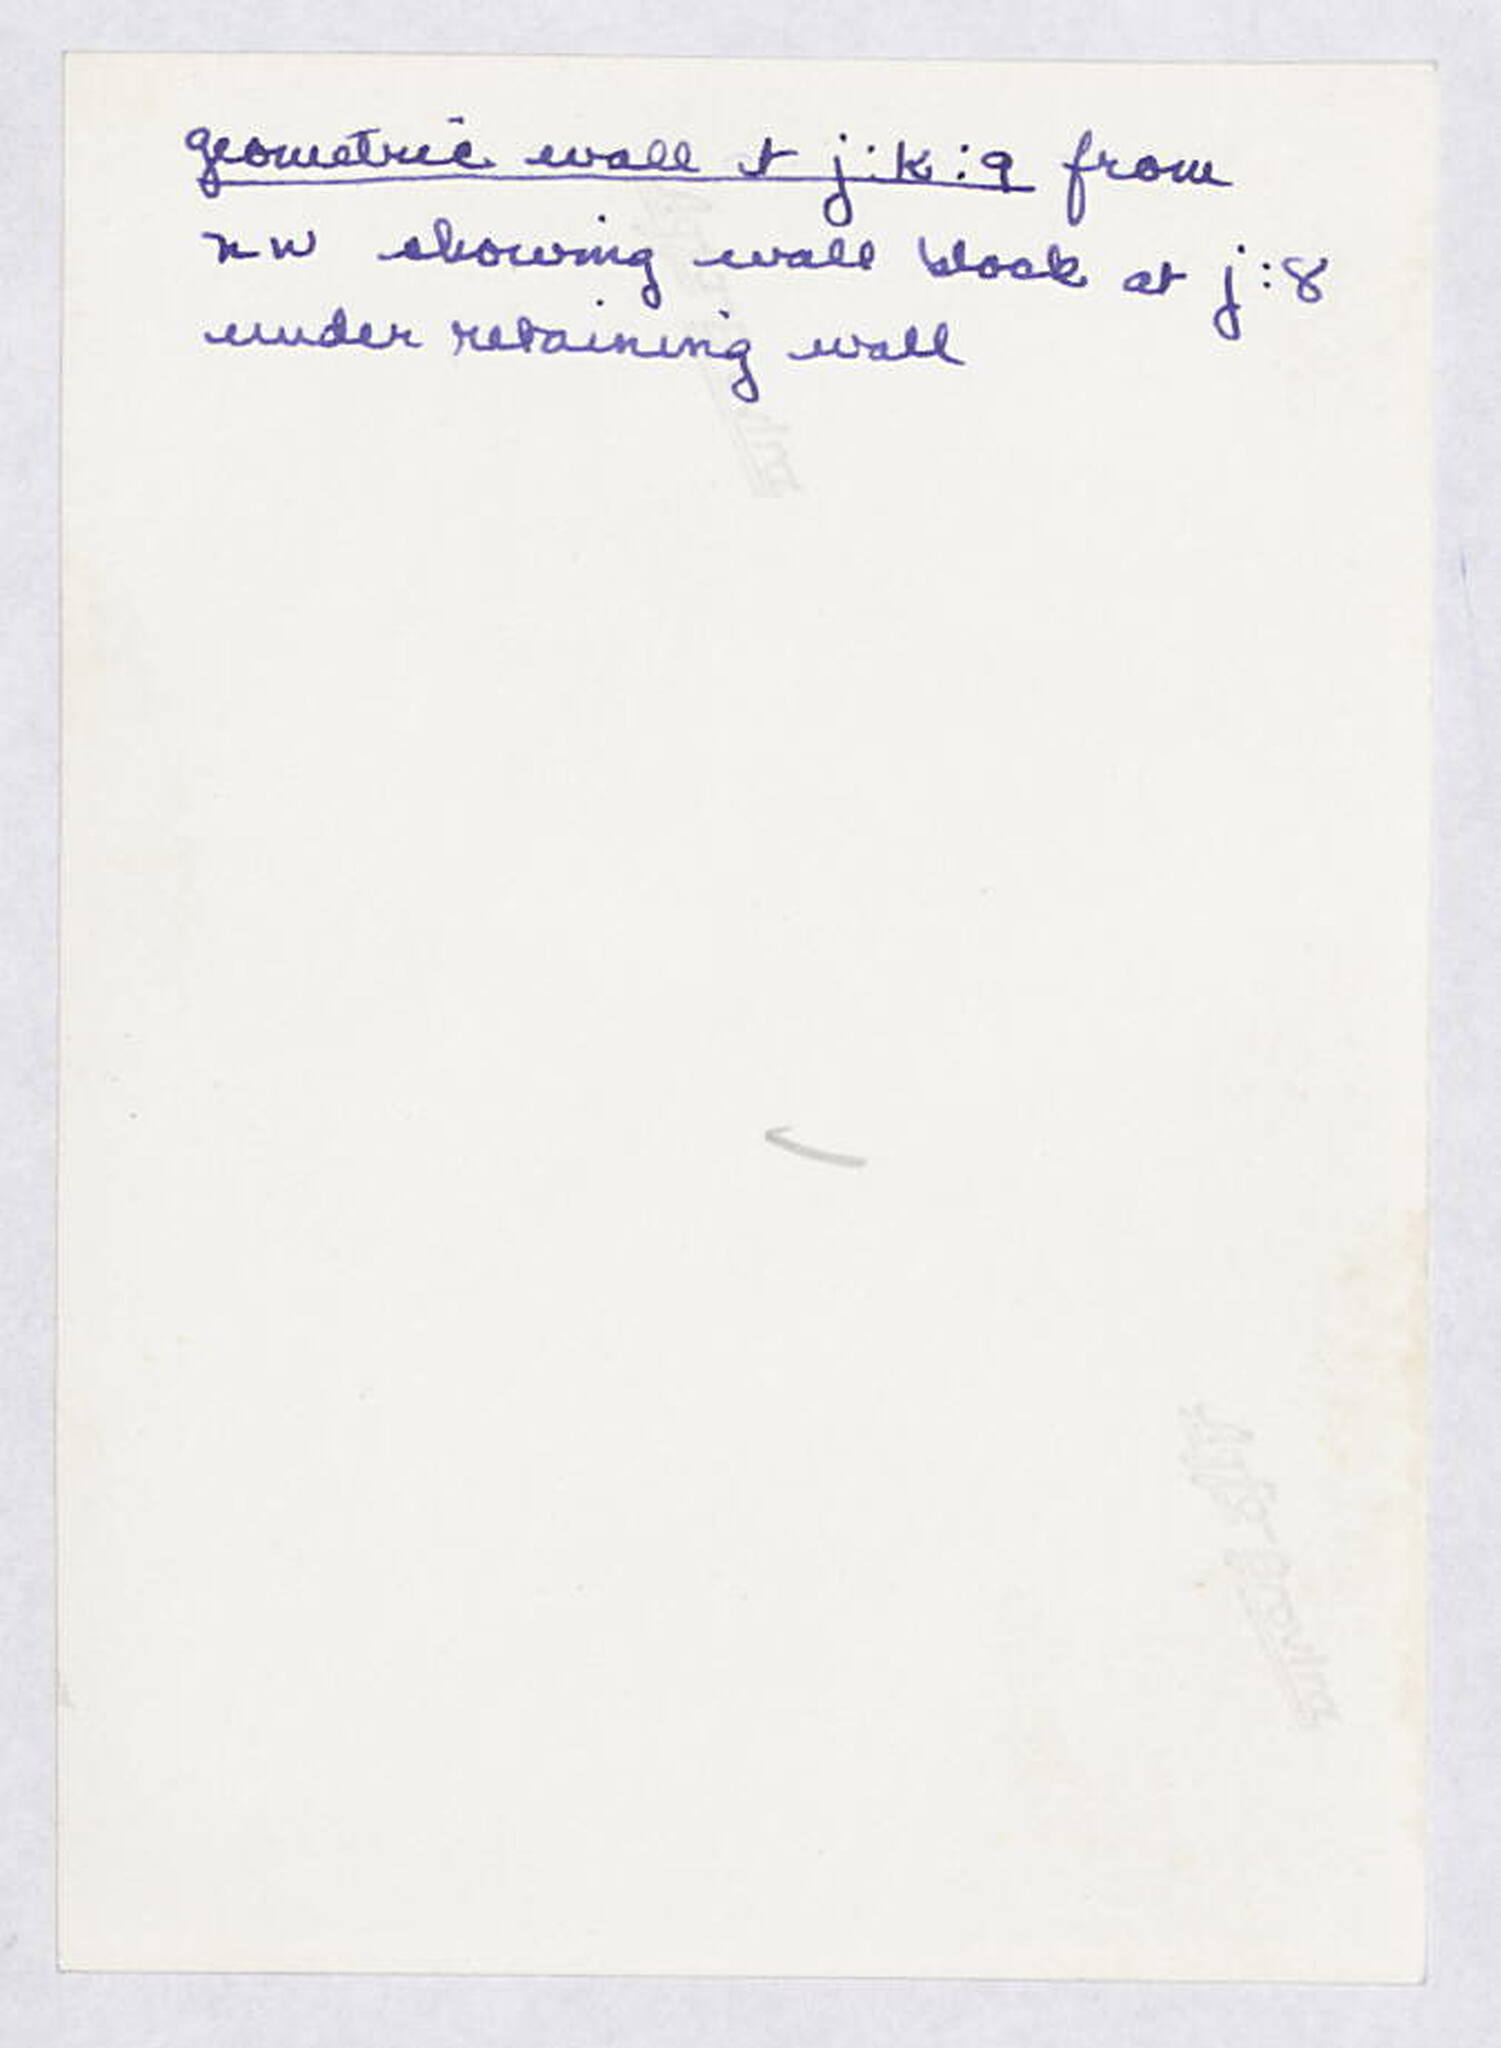 geometric wall + j:k:9 from
NW showing wall block at j:8
under retaining wall